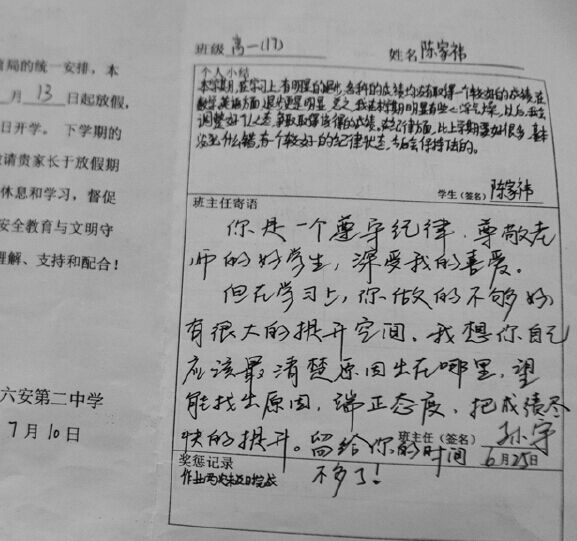 育局的统一安排，本
月 13 日起放假，
日开学。 下学期的
请贵家长于放假期
休息和学习，督促
安全教育与文明守
理解、支持和配合！
六安第二中学
7月10日
班级 高一(17) 姓名 陈家祎
个人小结
本学期，在学习上，有明显的退步，各科的成绩均没有取得一个较好的成绩，在
数学，英语方面，退步更是明显，总之，我在本学期明显有些心浮气燥，以后，我会
调整好个人心态，争取取得该得的成绩，在纪律方面，比上学期要好很多，基本
没犯什么错，有一个较好的纪律状态，今后会保持住的。
学生（签名） 陈家祎
班主任寄语
你是一个遵守纪律，尊敬老
师的好学生，深受我的喜爱。
但在学习上，你做的不够好，
有很大的提升空间，我想你自己
应该最清楚原因出在哪里，望
能找出原因，端正态度，把成绩尽
快的提升。留给你的时间
不多了！
班主任（签名） 孙宇
6月25日
奖惩记录
作业